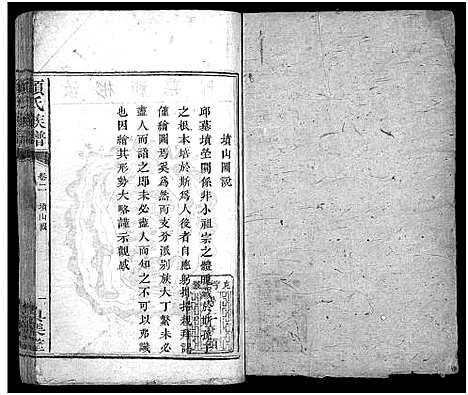 墳山圖說
邱墓墳塋關係非小祖宗之體魄藏於斯孫子
之根本培於斯爲人後者自應躬拜認
僅繪圖爲奚爲然而支分派別族大丁繁未必
盡人而詣之即未必盡人而知之不可以弗識
也因繪其形勢大略謹示觀感
項氏族譜
卷二
墳山圖
一